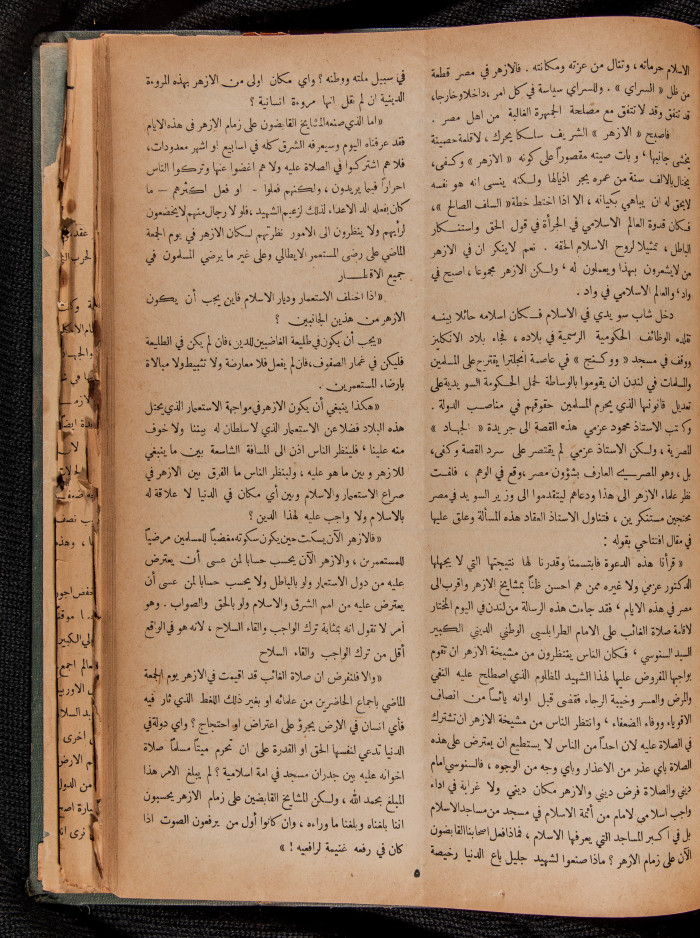 الاسلام حرماته ، وتنال من عزته ومكانته . فالازهر في مصر قطعة
من ظل « السراي » . وللسراي سياسة في كل امر ، داخلا وخارجا ،
قد تنفق وقد لا تتفق مع مصلحة الجمهرة الغالبة من اهل مصر .
فاصبح « الازهر » الشريف سلسكا يحرك ، لاقلعة حصينة
يخشى جانبها ، وبات صيته مقصوراً على كونه « الازهر » وكفى ،
يختال بالالف سنة من عمره يجر اذيالها ولكنه ينسى انه هو نفسه
لايحق له ان يباهي بكيانه ، الا اذا اختط خطة « السلف الصالح » ،
فكان قدوة العالم الاسلامي في الجرأة في قول الحق واستنكار
الباطل ، تمثيلا لروح الاسلام الحقة . نعم لاينكر ان في الازهر
من لايشعرون بهذا ويعملون له ، ولكن الازهر مجموعا ، اصبح في
واد ، والعالم الاسلامي في واد .
دخل شاب سويدي في الاسلام فكان اسلامه حائلا بينه
تقلده الوظائف الحكومية الرسمية في بلاده ، فجاء بلاد الانكليز
ووقف في مسجد « ووكنج » في عاصمة انجلترا يقترح على المسلمين
والمسلمات في لندن ان يقوموا بالوساطة لحمل الحكومة السويدية على
تعديل قانونها الذي يحرم المسلمين حقوقهم في مناصب الدولة .
وكتب الاستاذ محمود عزمي هذه القصة الى جريدة « الجهاد »
المصرية ، ولكن الاستاذ عزمي لم يقتصر على سرد القصة وكفى ،
بل ، وهو المصري العارف بشؤون مصر ، وقع في الوهم ، فلفت
نظر علماء الازهر الى هذا ودعاهم ليتقدموا الى وزير السويد في مصر
محتجين مستنكرين ، فتناول الاستاذ العقاد هذه المسألة وعلق عليها
في مقال افتتاحي بقوله :
« قرأنا هذه الدعوة فابتسمنا وقدرنا لها نتيجتها التي لا يجهلها
الدكتور عزمي ولا غيره ممن هم احسن ظناً بمشايخ الازهر واقرب الى
مصر في هذه الايام ، فقد جاءت هذه الرسالة من لندن في اليوم المختار
لاقامة صلاة الغائب على الامام الطرابلسي الوطني الديني الكبير
السيد السنوسي ، فكان الناس ينتظرون من مشيخة الازهر ان تقوم
بواجبها المفروض عليها لهذا الشهيد المظلوم الذي اصطلح عليه النفي
والمرض والعسر وخيبة الرجاء فقضى قبل اوانه يائساً من انصاف
الاقوياء ووفاء الضعفاء ، وانتظر الناس من مشيخة الازهر ان تشترك
في الصلاة عليه لان احداً من الناس لا يستطيع ان يعترض على هذه
الصلاة باي عذر من الاعذار وباي وجه من الوجوه ، فالسنوسي امام
ديني والصلاة فرض ديني والازهر مكان ديني ولا غرابة في اداء
واجب اسلامي لامام من أئمة الاسلام في مسجد من مساجد الاسلام
بل في اكبر المساجد التي يعرفها الاسلام ، فاذا فعل اصحابنا القابضون
الآن على زمام الازهر ؟ ماذا صنعوا لشهيد جليل باع الدنيا رخيصة
في سبيل ملته ووطنه ؟ واي مكان اولى من الازهر بهذه المروءة
الدينية ان لم نقل انها مروءة انسانية ؟
« اما الذي صنعه المشايخ القابضون على زمام الازهر في هذه الايام
فقد عرفناه اليوم وسيعرفه الشرق كله في اسابيع او اشهر معدودات ،
فلا هم اشتركوا في الصلاة عليه ولا هم اغضوا عنها وتركوا الناس
احراراً فيما يريدون ، ولكنهم فعلوا - او فعل اكثرهم - ما
كان يفعله الد الاعداء لذلك الزعيم الشهيد ، فلو لا رجال منهم لايخضعون
لرأيهم ولا ينظرون الى الامور نظرتهم لكان الازهر في يوم الجمعة
الماضي على رضى المستعمر الايطالي وعلى غير ما يرضي المسلمون في
جميع الاقطار
« اذا اختلف الاستعمار وديار الاسلام فاين يجب أن يكون
الازهر من هذين الجانبين ؟
« يجب أن يكون في طليعة الغاضبين للدين ، فان لم يكن في الطليعة
فليكن في غمار الصفوف ، فان لم يفعل فلا معارضة ولا تثبيط ولا مبالاة
بارضاء المستعمرين .
« هكذا ينبغي أن يكون الازهر في مواجهة الاستعمار الذي يحتل
هذه البلاد فضلا عن الاستعمار الذي لاسلطان له بيننا ولا خوف
منه علينا ، فلينظر الناس اذن الى المسافة الشاسعة بين ما ينبغي
للازهر وبين ما هو عليه ، ولينظر الناس ما الفرق بين الازهر في
صراع الاستعمار والاسلام وبين أي مكان في الدنيا لا علاقة له
بالاسلام ولا واجب عليه لهذا الدين ؟
« فالازهر الآن يسكت حين يكون سكوته مغضباً للمسلمين مرضياً
للمستعمرين ، والازهر الآن يحسب حسابا لمن عسى أن يعترض
عليه من دول الاستعمار ولو بالباطل ولا يحسب حسابا لمن عسى أن
يعترض عليه من امم الشرق والاسلام ولو بالحق والصواب . وهو
أمر لا نقول انه بمثابة ترك الواجب والقاء السلاح ، لانه هو في الواقع
أقل من ترك الواجب والقاء السلاح
« والا فلنفرض ان صلاة الغائب قد اقيمت في الازهر يوم الجمعة
الماضي باجماع الحاضرين من علمائه او بغير ذلك اللغط الذي ثار فيه
فأي انسان في الارض يجرؤ على اعتراض او احتجاج ؟ واي دولة في
الدنيا تدعي لنفسها الحق او القدرة على ان تحرم ميتاً مسلماً صلاة
اخوانه عليه بين جدران مسجد في امة اسلامية ؟ لم يبلغ الامر هذا
المبلغ بحمد الله ، ولكن المشايخ القابضين على زمام الازهر يحسبون
اننا بلغناه وبلغنا ما وراءه ، وان كانوا أول من يرفعون الصوت اذا
كان في رفعه غنيمة لرافعيه ! »
٥